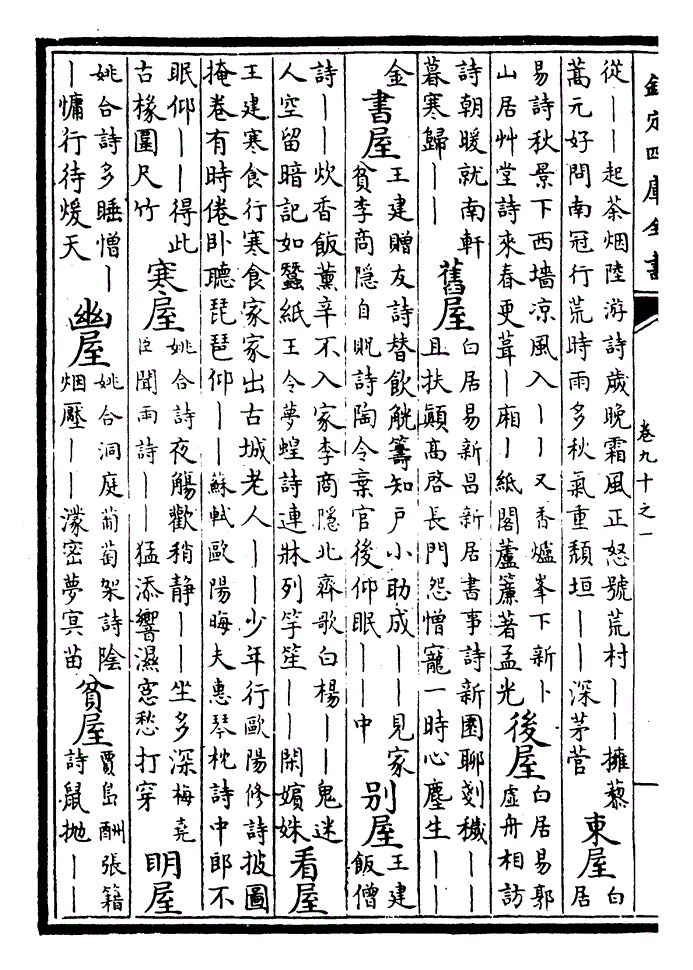 欽定四庫全書
卷九十之一
從——起茶烟陸游詩歲晚霜風正怒號荒村——擁藜
蒿元好問南冠行荒時雨多秋氣重頽垣——深茅菅
東屋
白
居
易詩秋景下西墻凉風入——又香爐峯下新卜
山居艸堂詩來春更葺—廂—紙閣蘆簾著孟光
後屋
白居易郭
虛舟相訪
詩朝暖就南軒
暮寒歸——
舊屋
白居易新昌新居書事詩新園聊剗穢——
且扶顛高啓長門怨憎寵一時心塵生——
金
書屋
王建贈友詩替飲觥籌知户小助成——見家
貧李商隠自貺詩陶令棄官後仰眠——中
别屋
王建
飯僧
詩——炊香飯薰辛不入家李商隠北齊歌白楊——鬼迷
人空留暗記如蠶紙王令夢蝗詩連牀列竽笙——閑嬪姝
看屋
王建寒食行寒食家家出古城老人——少年行歐陽修詩披圖
掩卷有時倦卧聽琵琶仰——蘇軾歐陽晦夫惠琴枕詩中郎不
眠仰——得此
古椽圍尺竹
寒屋
姚合詩夜觴歡稍静——坐多深梅堯
臣聞雨詩——猛添響濕窓愁打穿
明屋
姚合詩多睡憎—
—慵行待煖天
幽屋
姚合洞庭葡萄架詩陰
烟壓——濛密夢㝠苗
貧屋
賈島酬張籍
詩鼠抛——